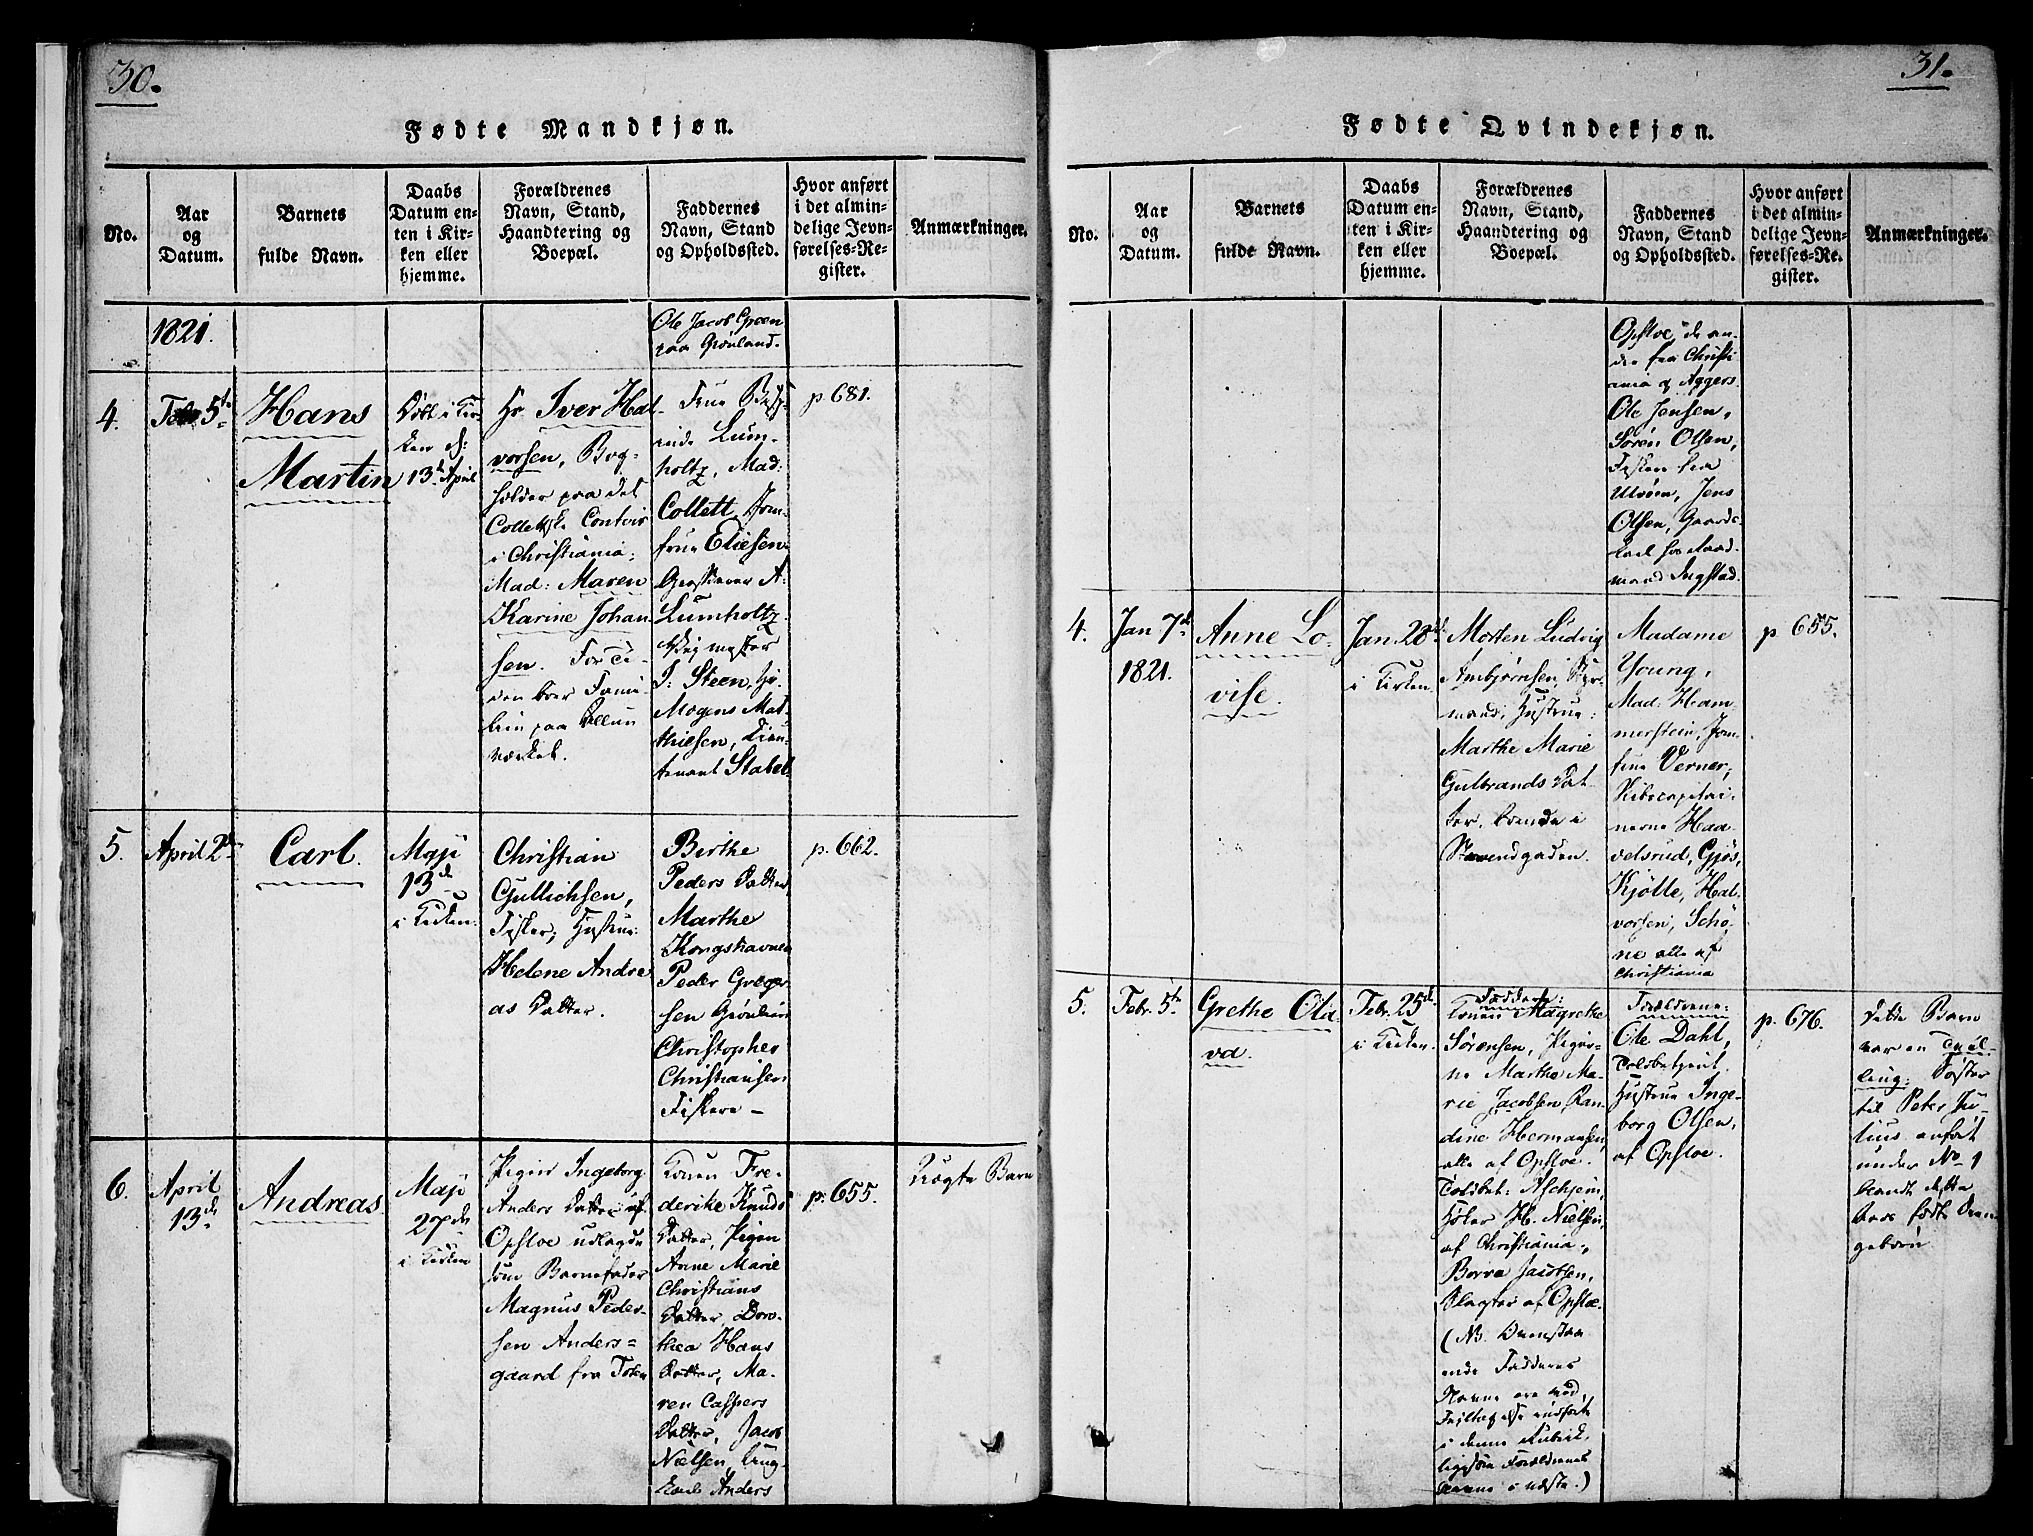 30.
Fødte Mandkjøn.
No.
Aar
og
Datum.
Barnets
fulde Navn.
Daabs
Datum en-
ten i Kir-
ken eller
hjemme.
Forældrenes
Navn, Stand,
Haandtering og
Boepæl.
Faddernes
Navn, Stand
og Opholdssted.
Hvor anført
i det almin-
delige Jevn-
førelses-Re-
gister.
Anmærkninger.
1821.
Ole Jacob Green
paa Grönland.
4.
Febr 5te
Hans
Martin
Döbt i Kir-
ken d:
13de April
Hr. Iver Hal-
vorsen, Bog-
holder paa det
Collettske Contoir
i Christiania,
Mad: Maren
Karine Johan-
sen. For Ti-
den boer Fami-
lien paa Allun
værket.
Frue Bisp-
inde Lum-
holtz, Mad:
Collett, Jom-
frue Eliesen
A:
Lumholtz
J: Steen, Hr.
Mogens Mat-
thiesen, Lieu-
tenant Stabel
p. 681.
5.
April 2den
Carl.
Maji
13de
i Kirken.
Christian
Gullichsen,
Fisker; Hustrue:
Helene Andre
as Datter.
Birthe
Peders Datter
Marthe
Kongshavnen
Peder Greger
sen Grönlien
Christopher
Christiansen
Fiskere -
p. 662.
6.
April
13de
Andreas
Maji
27de
i Kirken
Pigen Ingeborg
Anders Datter af
Opsloe udlagde
som Barnefader
Magnus Peder-
sen Anders-
gaard fra Toten
Konen Fre-
derike Knuds
Datter, Pigen
Anne Marie
Christians
Datter, Doro-
thea Hans
Datter, Ma-
ren Caspers
Datter, Jacob
Nielsen, Ung-
Karl Anders
p. 655.
Uægte Barn
31.
Fødte Qvindekjøn.
No.
Aar
og
Datum.
Barnets
fulde Navn.
Daabs
Datum en-
ten i Kir-
ken eller
hjemme.
Forældrenes
Navn, Stand,
Haandtering og
Boepæl.
Faddernes
Navn, Stand
og Opholdssted.
Hvor anført
i det almin-
delige Jevn-
førelses-Re-
gister.
Anmærkninger.
Opsloe, de an-
dre fra Christi
ania og Aggers.
Ole Jensen,
Sören Olsen,
Fisker fra
Ulvöen, Jens
Olsen, Gaards-
karl hos Raad-
mand Ingstad.
4.
Jan 7de
1821.
Anne Lo-
vise.
Jan. 28de
i Kirken.
Morten Ludvig
Ambjörnsen, Styr-
mand; Hustrue:
Marthe Marie
Gulbrands Dat
ter, boende i
Strandgaden.
Madame
Young,
Mad. Ham-
merstein, Jom-
frue Verner,
Skibscapitai-
nerne Haa-
velsrud, Gjös,
Kjölle, Hal-
vorsen, Schö-
ne alle af
Christiania
p. 655.
5.
Febr. 5te
Grethe Ola
va.
Febr. 25de
i Kirken.
Faddere:
Konen Magrethe
Sörensen, Piger-
ne Marthe Ma-
rie Jacobsen, Ran-
dine Hermansen,
alle af Opsloe.
Toldbet: Aschjem,
Höker H. Nielsen,
af Christiania,
Borre Jacobsen,
Slagter af Opsloe.
(NB. Ovenstaa
ende Fadderes
Navne ere ved
Feiltagelse indførte
i denne Rubrik,
ligesom Forældrenes
Navne i næste.)
Forældrene:
Ole Dahl,
Toldbetjent.
Hustrue Inge-
borg Olsen,
af Opsloe.
p. 676.
Dette Barn
var en Tvil-
ling: Söster
til Peter Ju-
lius anfört
under No 1
blandt dette
Aars födte Dren-
gebörn